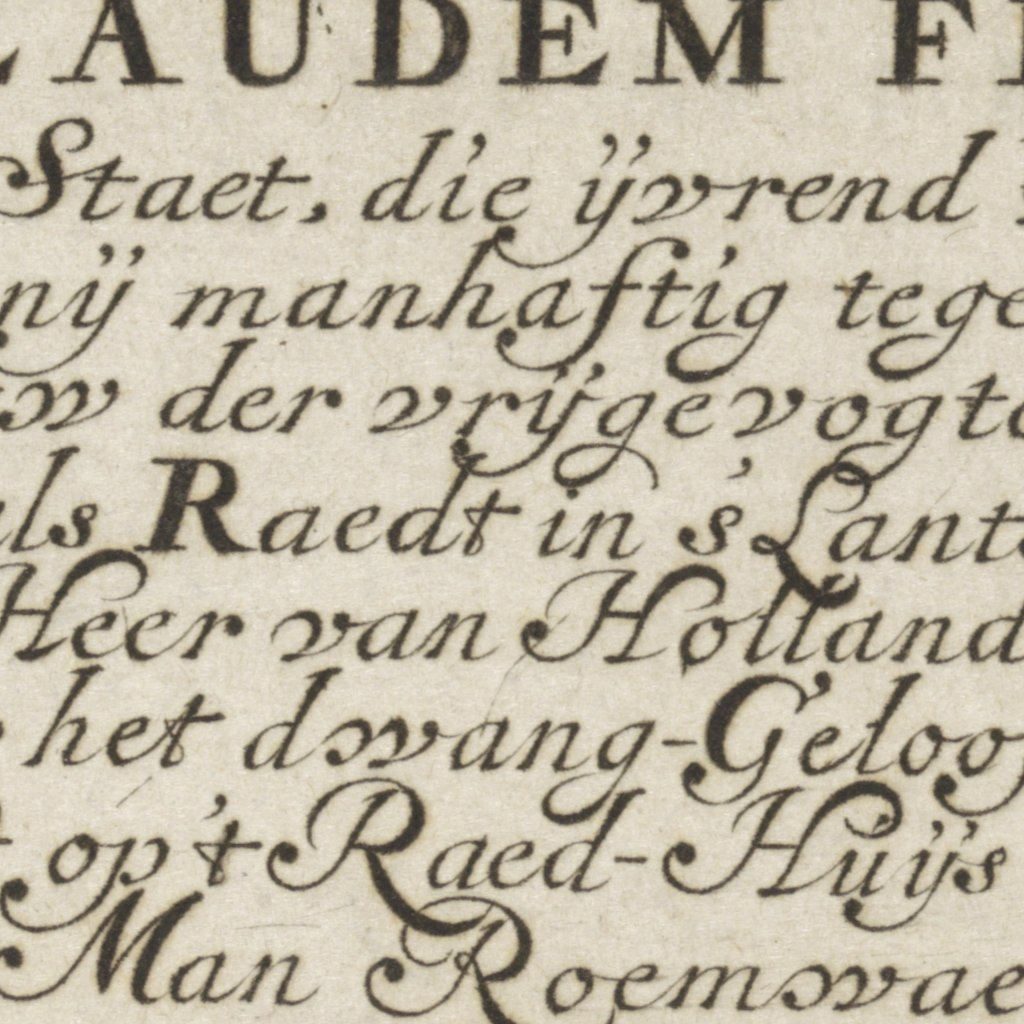 LAUDEM F
Staet, die ÿvrend
nÿ manhaftig tege
w der vrÿgevogt
als Raedt in s'Lants
Heer van Holland
het dwang-Geloof
op't Raed-Huÿs
Man Roemwae